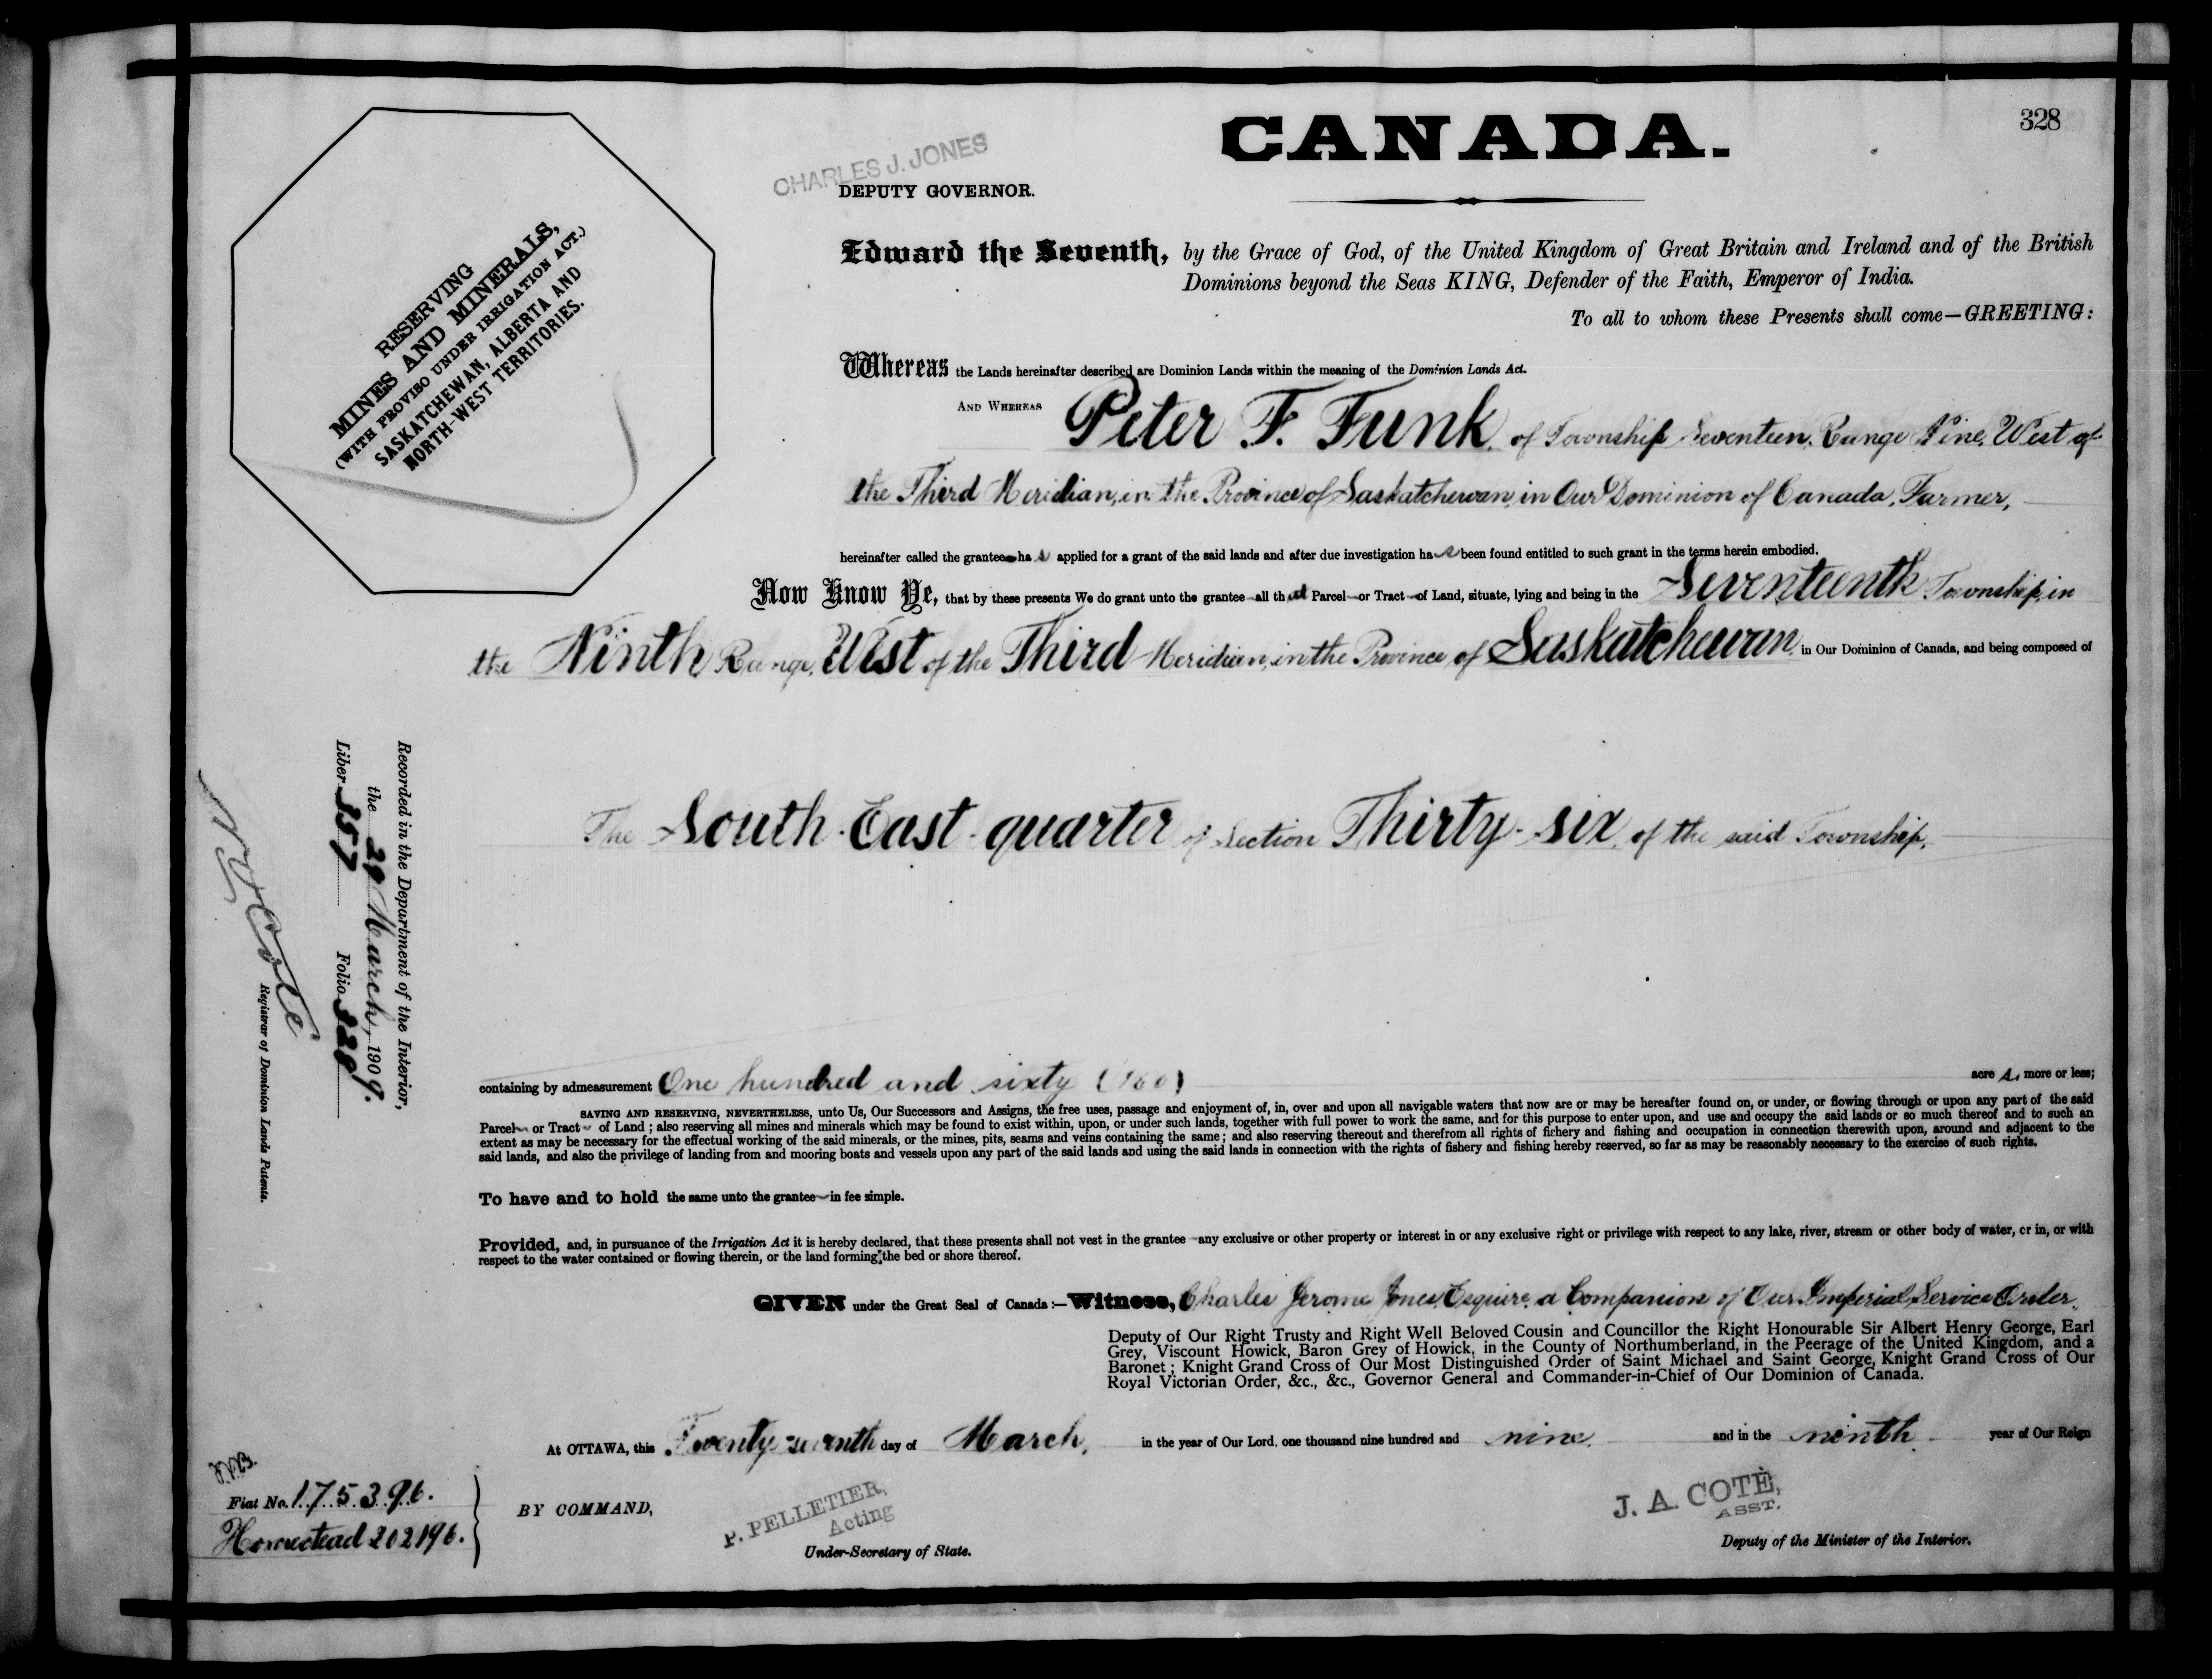 328
CANADA.
CHARLES J. JONES
DEPUTY GOVERNOR.
RESERVING
MINES AND MINERALS,
(WITH PROVISO UNDER IRRIGATION ACT.)
SASKATCHEWAN, ALBERTA AND
NORTH-WEST TERRITORIES.
Edward the Seventh, by the Grace of God, of the United Kingdom of Great Britain and Ireland and of the British
Dominions beyond the Seas KING, Defender of the Faith, Emperor of India.
To all to whom these Presents shall come—GREETING:
Whereas the Lands hereinafter described are Dominion Lands within the meaning of the Dominion Lands Act.
AND WHEREAS Peter F. Funk, of Township Seventeen, Range Nine, West of
the Third Meridian, in the Province of Saskatchewan, in Our Dominion of Canada, Farmer,
hereinafter called the grantee has applied for a grant of the said lands and after due investigation has been found entitled to such grant in the terms herein embodied.
Now Know Ye, that by these presents We do grant unto the grantee all that Parcel or Tract of Land, situate, lying and being in the Seventeenth Township, in
the Ninth Range, West of the Third Meridian, in the Province of Saskatchewan, in Our Dominion of Canada, and being composed of
The South-East-quarter of Section Thirty-six, of the said Township,
containing by admeasurement One hundred and sixty (160) acres, more or less;
SAVING AND RESERVING, NEVERTHELESS, unto Us, Our Successors and Assigns, the free uses, passage and enjoyment of, in, over and upon all navigable waters that now are or may be hereafter found on, or under, or flowing through or upon any part of the said
Parcel or Tract of Land; also reserving all mines and minerals which may be found to exist within, upon, or under such lands, together with full power to work the same, and for this purpose to enter upon, and use and occupy the said lands or so much thereof and to such an
extent as may be necessary for the effectual working of the said minerals, or the mines, pits, seams and veins containing the same; and also reserving thereout and therefrom all rights of fishery and fishing and occupation in connection therewith upon, around and adjacent to the
said lands, and also the privilege of landing from and mooring boats and vessels upon any part of the said lands and using the said lands in connection with the rights of fishery and fishing hereby reserved, so far as may be reasonably necessary to the exercise of such rights.
To have and to hold the same unto the grantee in fee simple.
Provided, and, in pursuance of the Irrigation Act it is hereby declared, that these presents shall not vest in the grantee any exclusive or other property or interest in or any exclusive right or privilege with respect to any lake, river, stream or other body of water, or in, or with
respect to the water contained or flowing therein, or the land forming the bed or shore thereof.
GIVEN under the Great Seal of Canada:—Witness, Charles Jerome Jones, Esquire, a Companion of Our Imperial Service Order,
Deputy of Our Right Trusty and Right Well Beloved Cousin and Councillor the Right Honourable Sir Albert Henry George, Earl
Grey, Viscount Howick, Baron Grey of Howick, in the County of Northumberland, in the Peerage of the United Kingdom, and a
Baronet; Knight Grand Cross of Our Most Distinguished Order of Saint Michael and Saint George, Knight Grand Cross of Our
Royal Victorian Order, &c., &c., Governor General and Commander-in-Chief of Our Dominion of Canada.
At OTTAWA, this Twenty-seventh day of March, in the year of Our Lord, one thousand nine hundred and nine and in the ninth year of Our Reign
BY COMMAND,
P. PELLETIER,
Acting
Under-Secretary of State.
J. A. COTÈ,
ASST.
Deputy of the Minister of the Interior.
Fiat No. 175396.
Homestead 202196.
Recorded in the Department of the Interior,
the 29 March, 1909.
Liber 357 Folio 328
Coté
Registrar of Dominion Lands Patents.